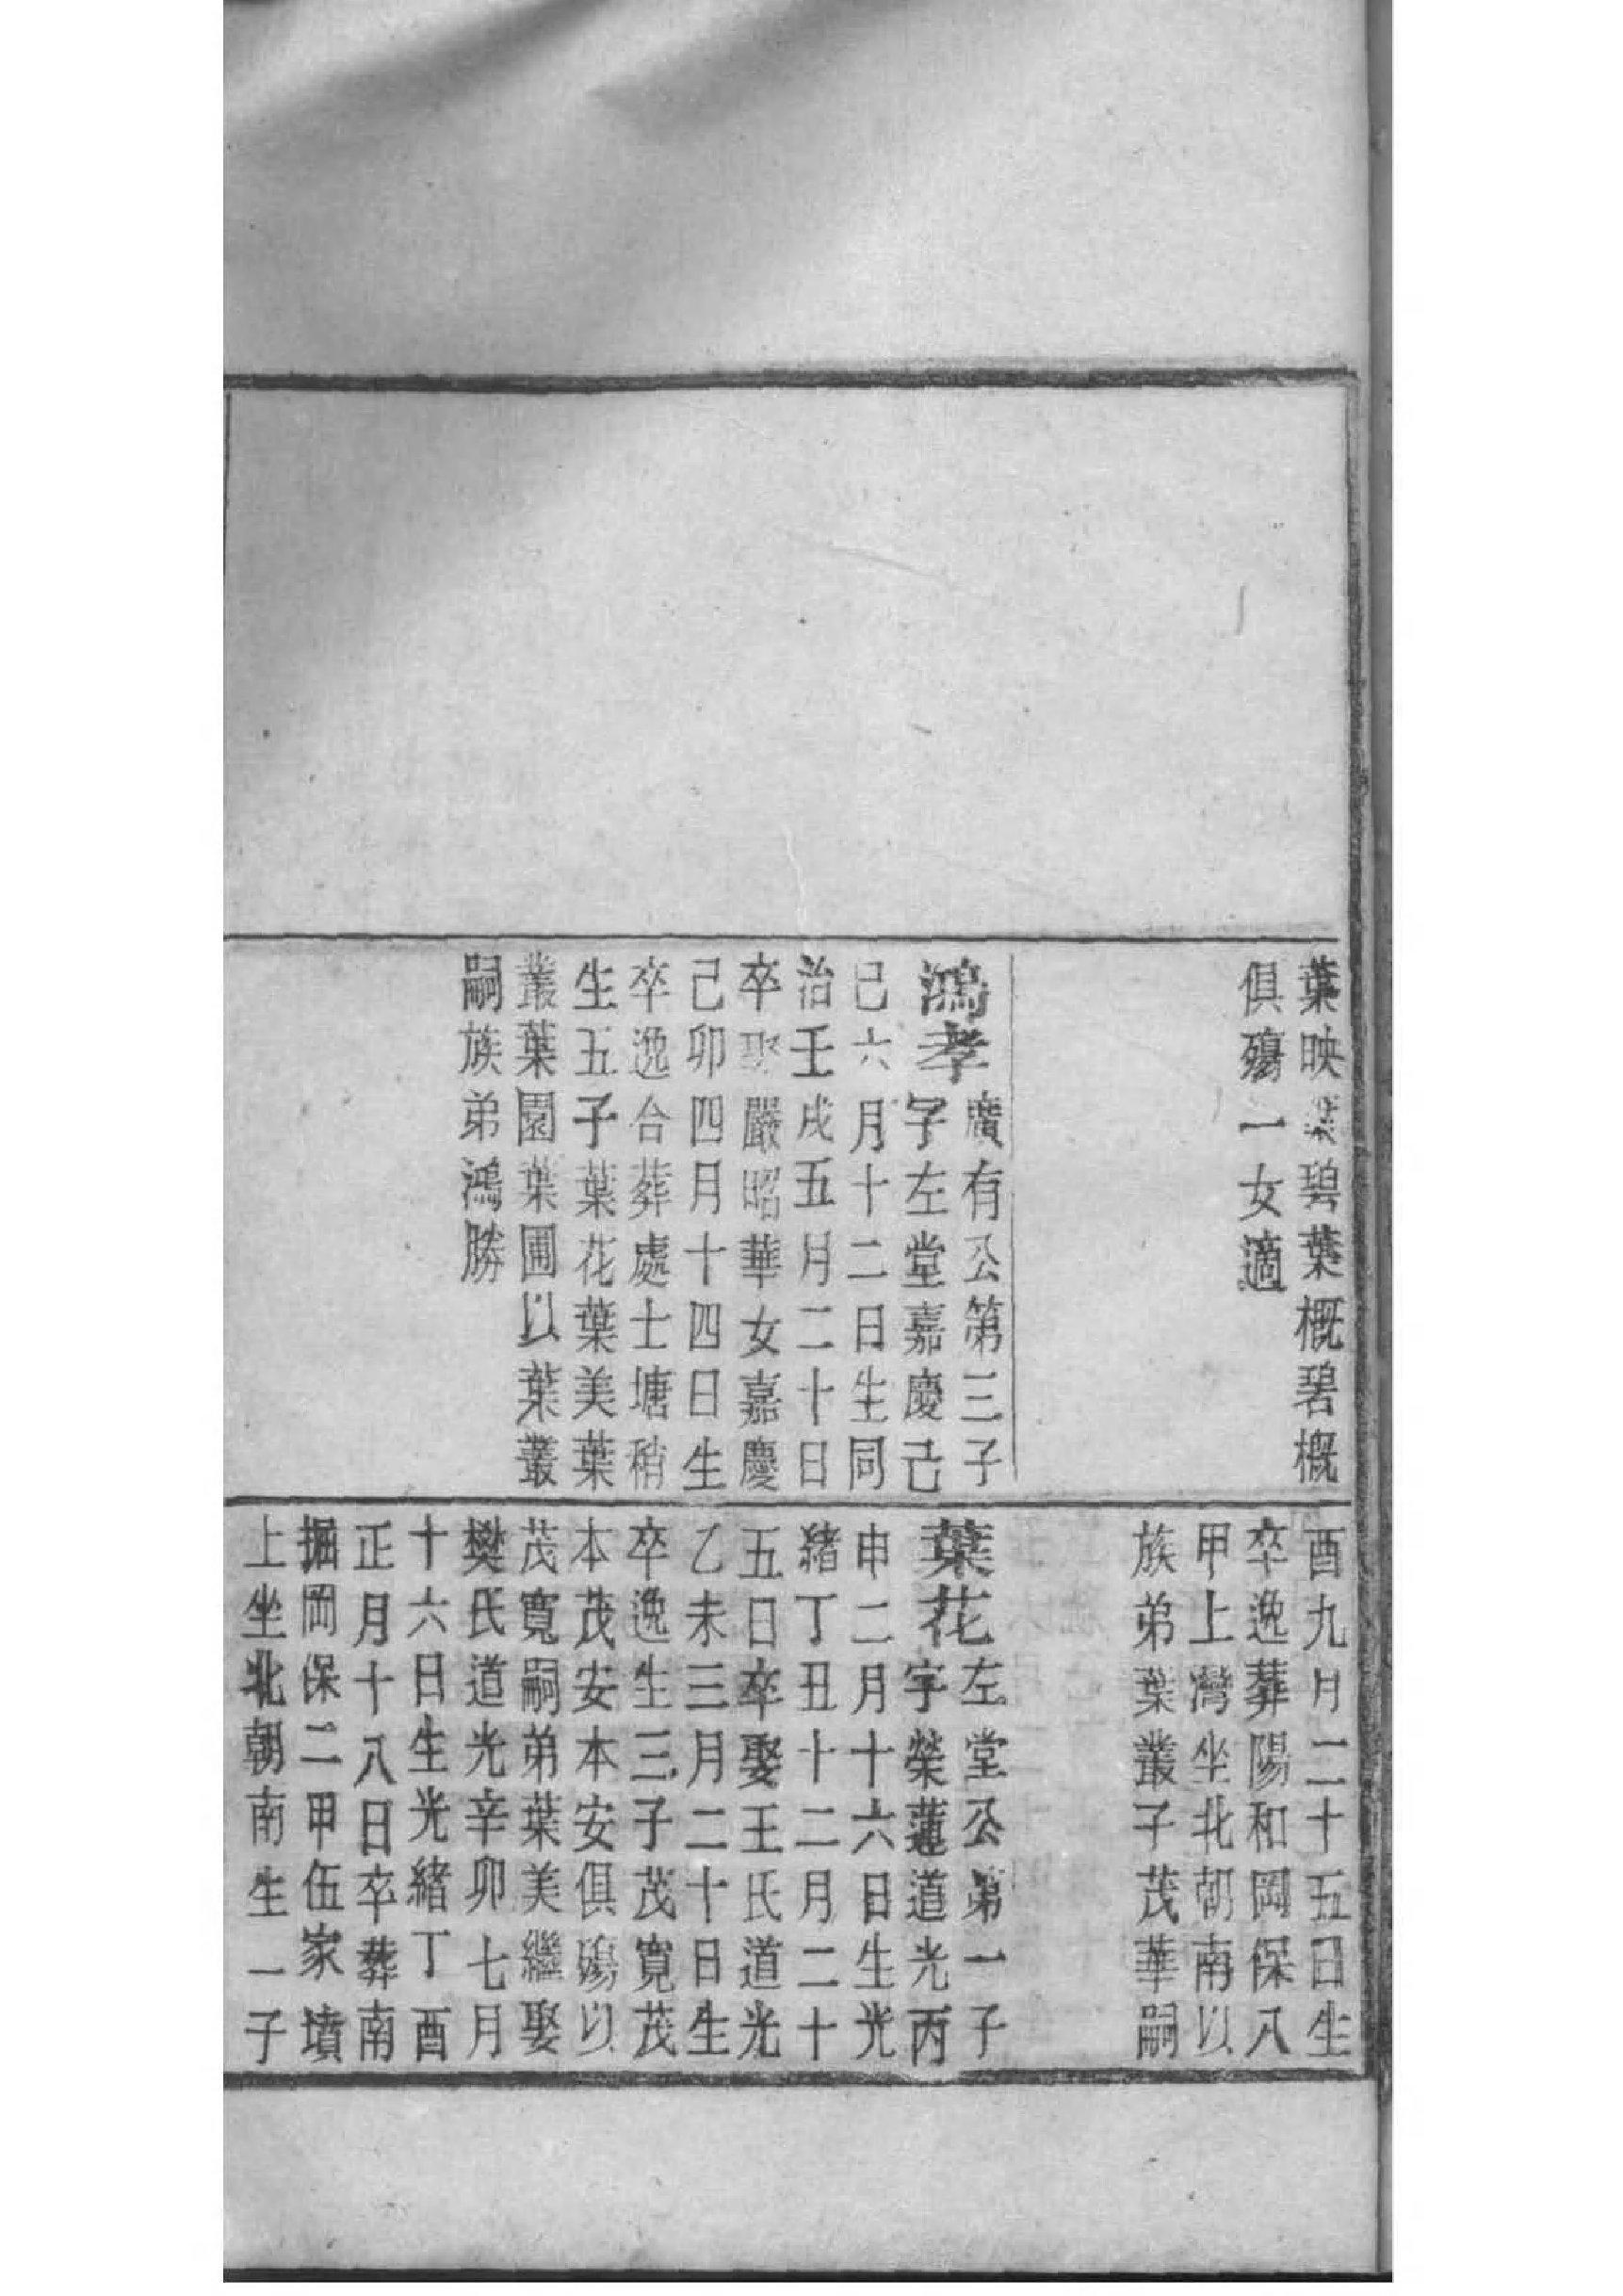 葉映碧葉概碧概
俱殤一女適
鴻孝
廣有公第三子
字左堂嘉慶己
巳六月十二日生同
治壬戌五月二十日
卒娶嚴昭華女嘉慶
己卯四月十四日生
卒逸合葬處士塘稍
生五子葉花葉美葉
叢葉園葉圃以葉叢
嗣族弟鴻勝
酉九月二十五日生
卒逸葬陽和岡保八
甲上灣坐北朝南以
族弟葉叢子茂華嗣
葉花
左堂公第一子
字榮蓮道光丙
申二月十六日生光
緒丁丑十二月二十
五日卒娶王氏道光
乙未三月二十日生
卒逸生三子茂寬茂
本茂安本安俱殤以
茂寬嗣弟葉美繼娶
樊氏道光辛卯七月
十六日生光緒丁酉
正月十八日卒葬南
掘岡保二甲伍家墳
上坐北朝南生一子